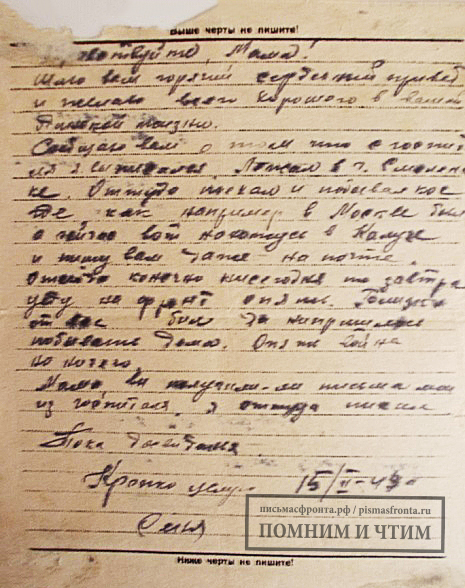 Выше черты не пишите!
Здравствуйте, Мама!
Шлю вам горячий сердечный привет
и желаю всего хорошего в вашей
жизни.
Сообщаю вам о том что с госпи-
ля я выписался. Лежал в г. Смоленс-
ке. Оттуда поехал и побывал кое
где, как например в Москве был
а сейчас вот нахожусь в Калуге
и пишу вам даже на почте.
конечно не сегодня то завтра
уеду на фронт опять. Близко
от вас был да не пришлось
побывать дома. Опять война
но ничего.
Мама вы получили-ли письма мои
из госпиталя, я оттуда писал
Пока до свиданья
Крепко целую 15/II-43
Сеня
письмасфронта.рф / pismasfronta.ru
ПОМНИМ И ЧТИМ
Ниже черты не пишите!